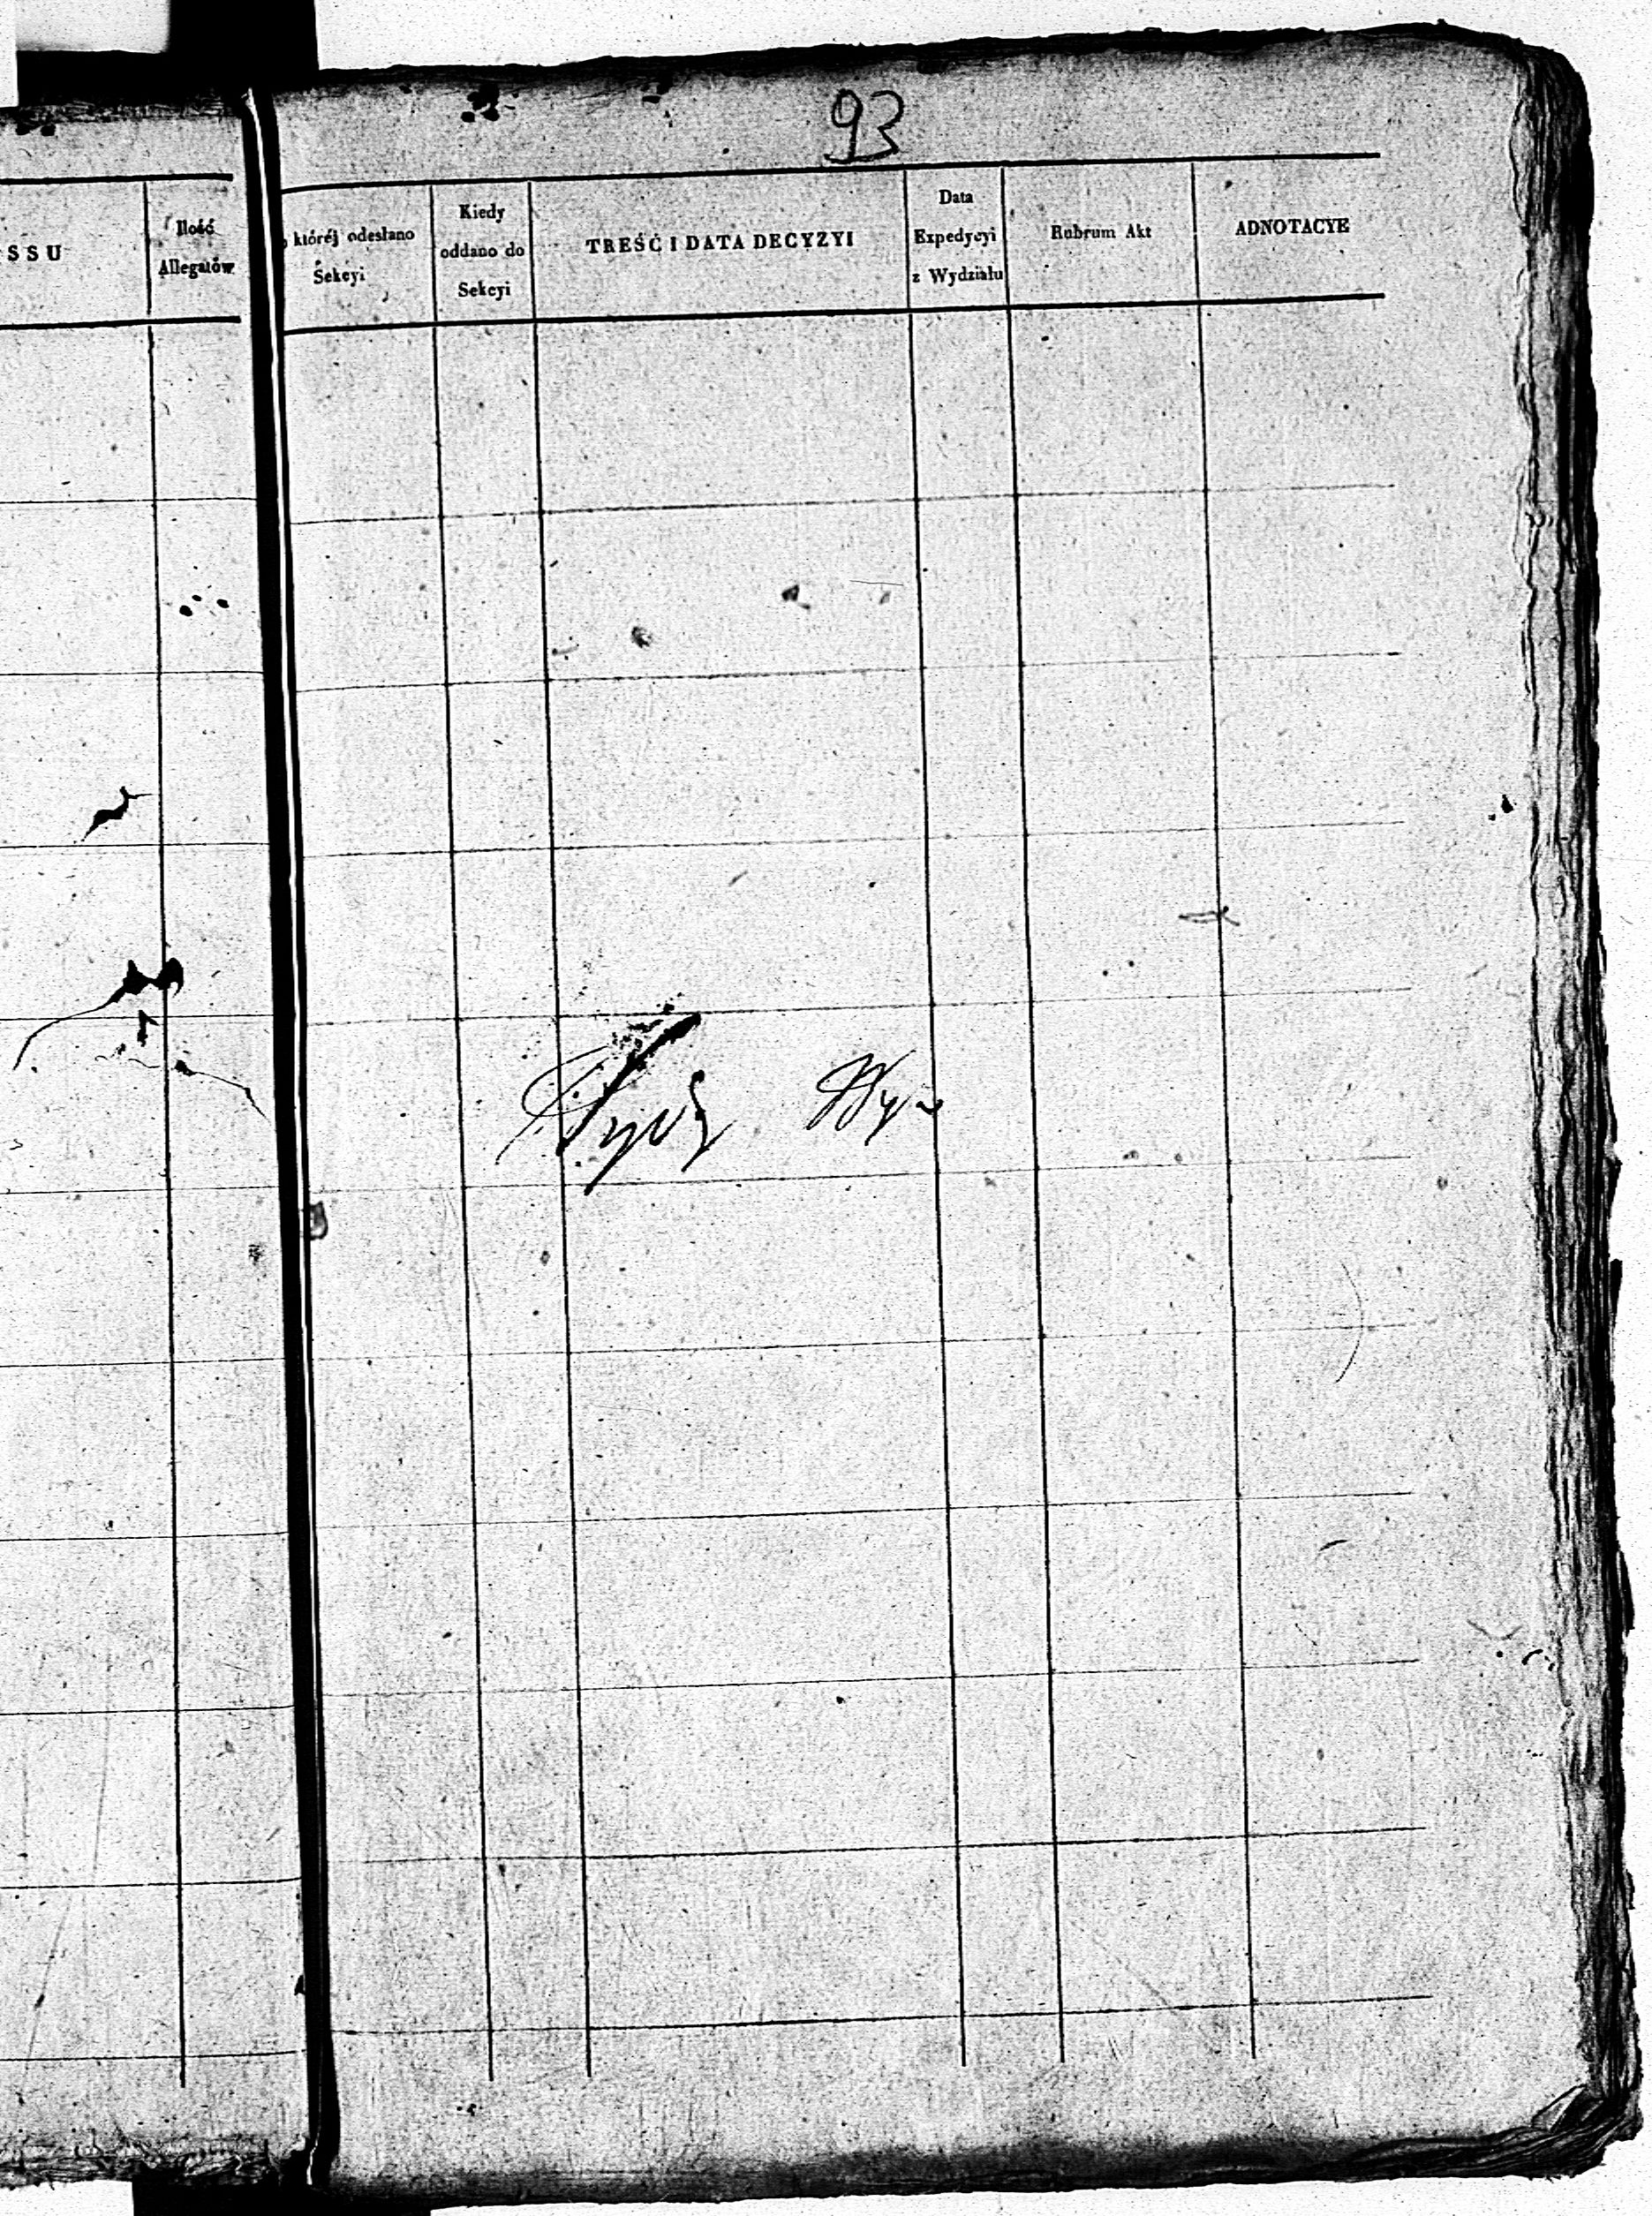 93
SSU
Ilość
Allegatów
któréj odesłano
Sekcyi
Kiedy
oddano do
Sekcyi
TREŚĆ I DATA DECYZYI
Data
Expedycyi
z Wydziału
Rubrum Akt
ADNOTACYE